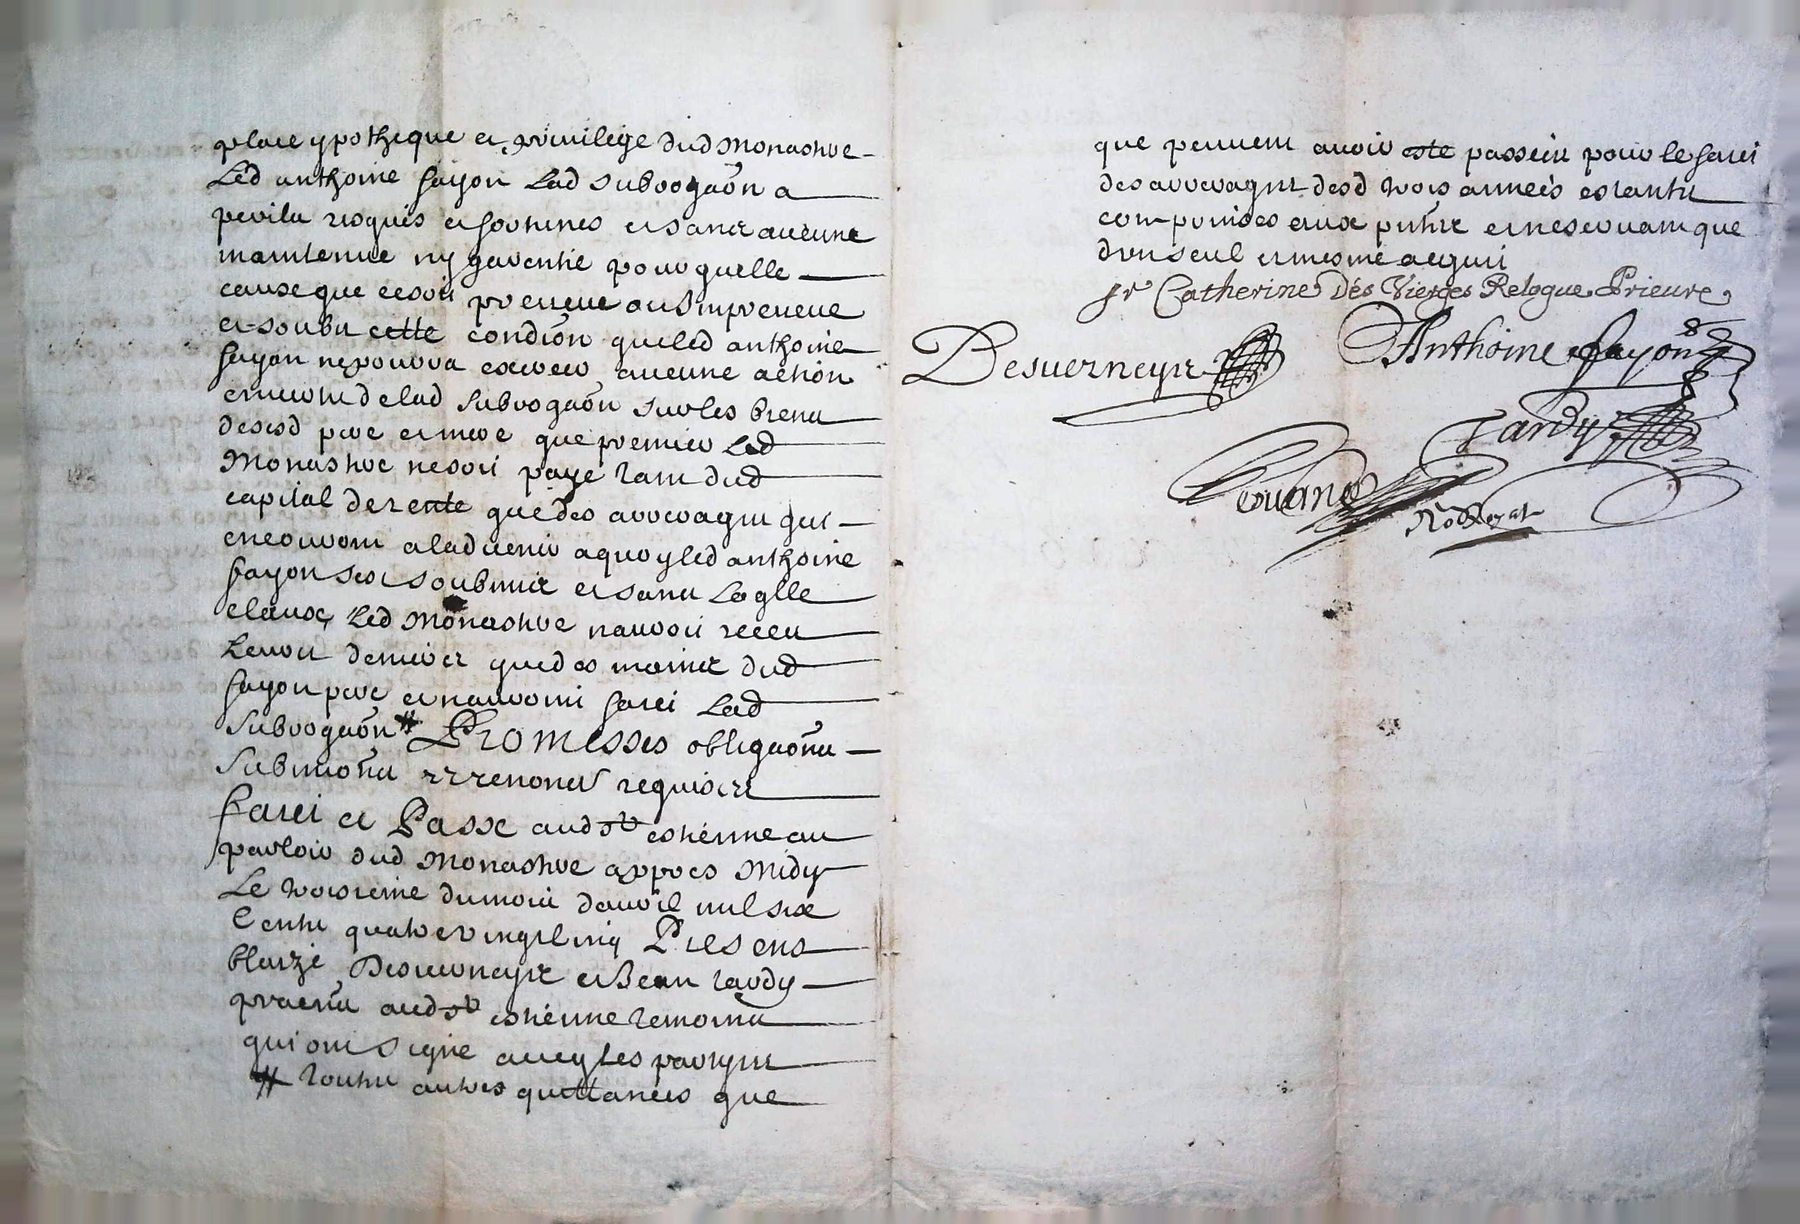 place ypotheque et privilege dud Monastere
Led anthoine fayon Lad subrogaon a
perilz risques et fortunes et sans aucune
maintenue ny garentie pour quelle
cause que ce soit preveue ou impreveue
et soubz cette condion que led anthoine
fayon ne pourra exercer aucune action
en vertu de lad subrogaon sur les biens
desd pere et mere que premier Led
Monastere ne soit paye tant dud
capital de rente que des arrerages qui
encourront a ladvenir a quoy led anthoine
fayon ses soubmis et sans laqlle
clause Led Monastere nauroit receu
Leurs deniers que des mains dud
fayon pere et nauroint faict Lad
subrogaon # Promesses obligaons
submions renons requises
faict et Passe aud st estienne au
parloir dud Monastere appres Midy
Le troisieme du mois davril mil six
Centz quatre vingtz cinq Presens
blaize Desverneys et Jean tardy
praens aud st estienne temoins
qui ont signe avecq les partyes
# toutes autres quittances que
que peuvent avoir este passees pour le faict
des arrerages desd trois annees estants
comprinses aux pntes et ne servant que
dun seul et mesme acquit
sr Catherine Des Vierges Reloque Prieure
Desverneys
Anthoine fayon
Tardy